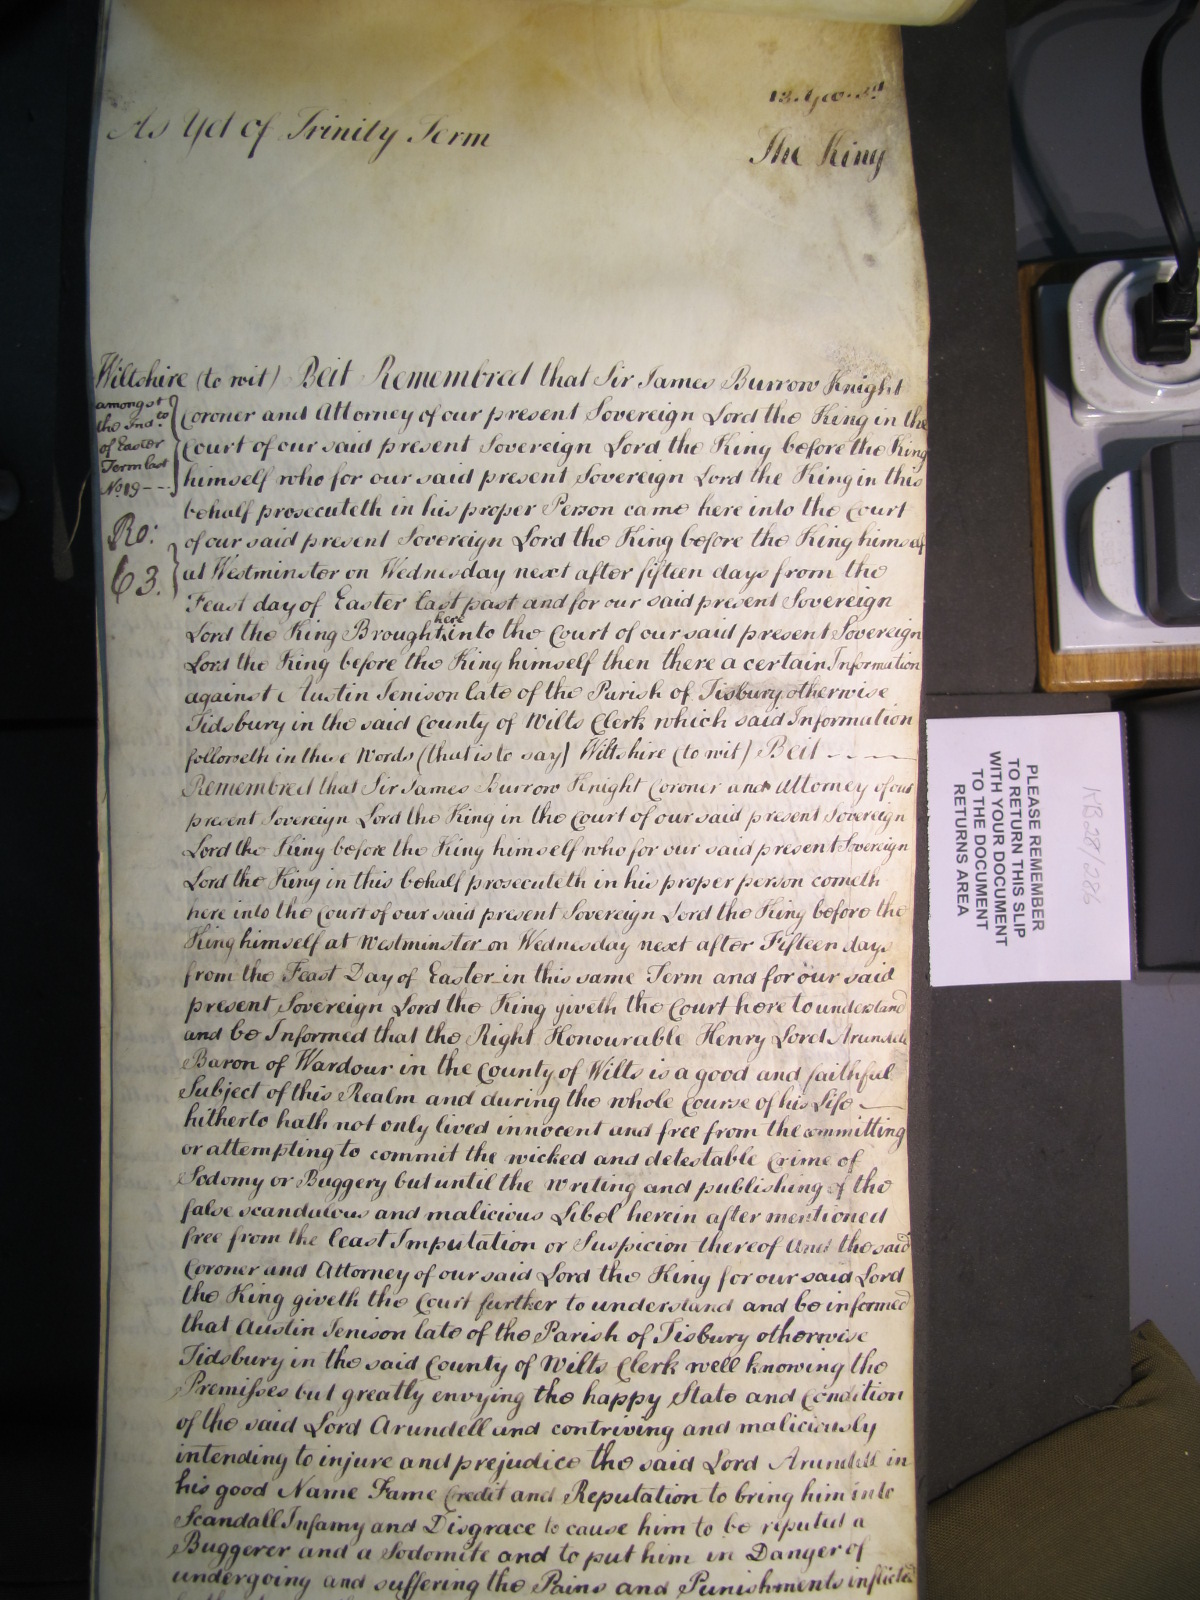 13. Geo. 3d
As Yet of Trinity Term
The King
Wiltshire (to wit) Beit Remembred that Sir James Burrow Knight
amongst
the Ind.ts
of Easter
Term last
No 19 - - -
Ro:
63.
Coroner and Attorney of our present Sovereign Lord the King in the
Court of our said present Sovereign Lord the King before the King
himself who for our said present Sovereign Lord the King in this
behalf prosecuteth in his proper Person came here into the Court
of our said present Sovereign Lord the King before the King himself
at Westminster on Wednesday next after fifteen days from the
Feast day of Easter last past and for our said present Sovereign
Lord the King Brought here into the Court of our said present Sovereign
Lord the King before the King himself then there a certain Information
against Austin Jenison late of the Parish of Tisbury otherwise
Tidsbury in the said County of Wilts Clerk which said Information
followeth in these Words (that is to say) Wiltshire (to wit) Beit - - -
Remembred that Sir James Burrow Knight Coroner and Attorney of our
present Sovereign Lord the King in the Court of our said present Sovereign
Lord the King before the King himself who for our said present Sovereign
Lord the King in this behalf prosecuteth in his proper person cometh
here into the Court of our said present Sovereign Lord the King before the
King himself at Westminster on Wednesday next after Fifteen days
from the Feast Day of Easter in this same Term and for our said
present Sovereign Lord the King giveth the Court here to understand
and be Informed that the Right Honourable Henry Lord Arundell
Baron of Wardour in the County of Wilts is a good and faithful
Subject of this Realm and during the whole Course of his Life
hitherto hath not only lived innocent and free from the committing
or attempting to commit the wicked and detestable Crime of
Sodomy or Buggery but until the writing and publishing of the
false scandalous and malicious Libel herein after mentioned
free from the least Imputation or Suspicion thereof And the said
Coroner and Attorney of our said Lord the King for our said Lord
the King giveth the Court further to understand and be informed
that Austin Jenison late of the Parish of Tisbury otherwise
Tidsbury in the said County of Wilts Clerk well knowing the
Premisses but greatly envying the happy State and Condition
of the said Lord Arundell and contriving and maliciously
intending to injure and prejudice the said Lord Arundell in
his good Name Fame Credit and Reputation to bring him into
Scandall Infamy and Disgrace to cause him to be reputed a
Buggerer and a Sodomite and to put him in Danger of
undergoing and suffering the Pains and Punishments inflicted
KB 28/286
PLEASE REMEMBER
TO RETURN THIS SLIP
WITH YOUR DOCUMENT
TO THE DOCUMENT
RETURNS AREA